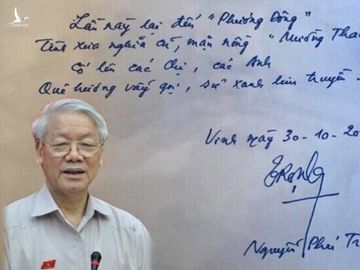 Lần này lại đến "Phương Đông"
Tình xưa nghĩa cũ, mặn nồng "Mường Tha
Cố lên các Chị, các Anh
Quê hương vẫy gọi, sử xanh lưu truyền
Vinh ngày 30-10-20
Trọng
Nguyễn Phú Tr